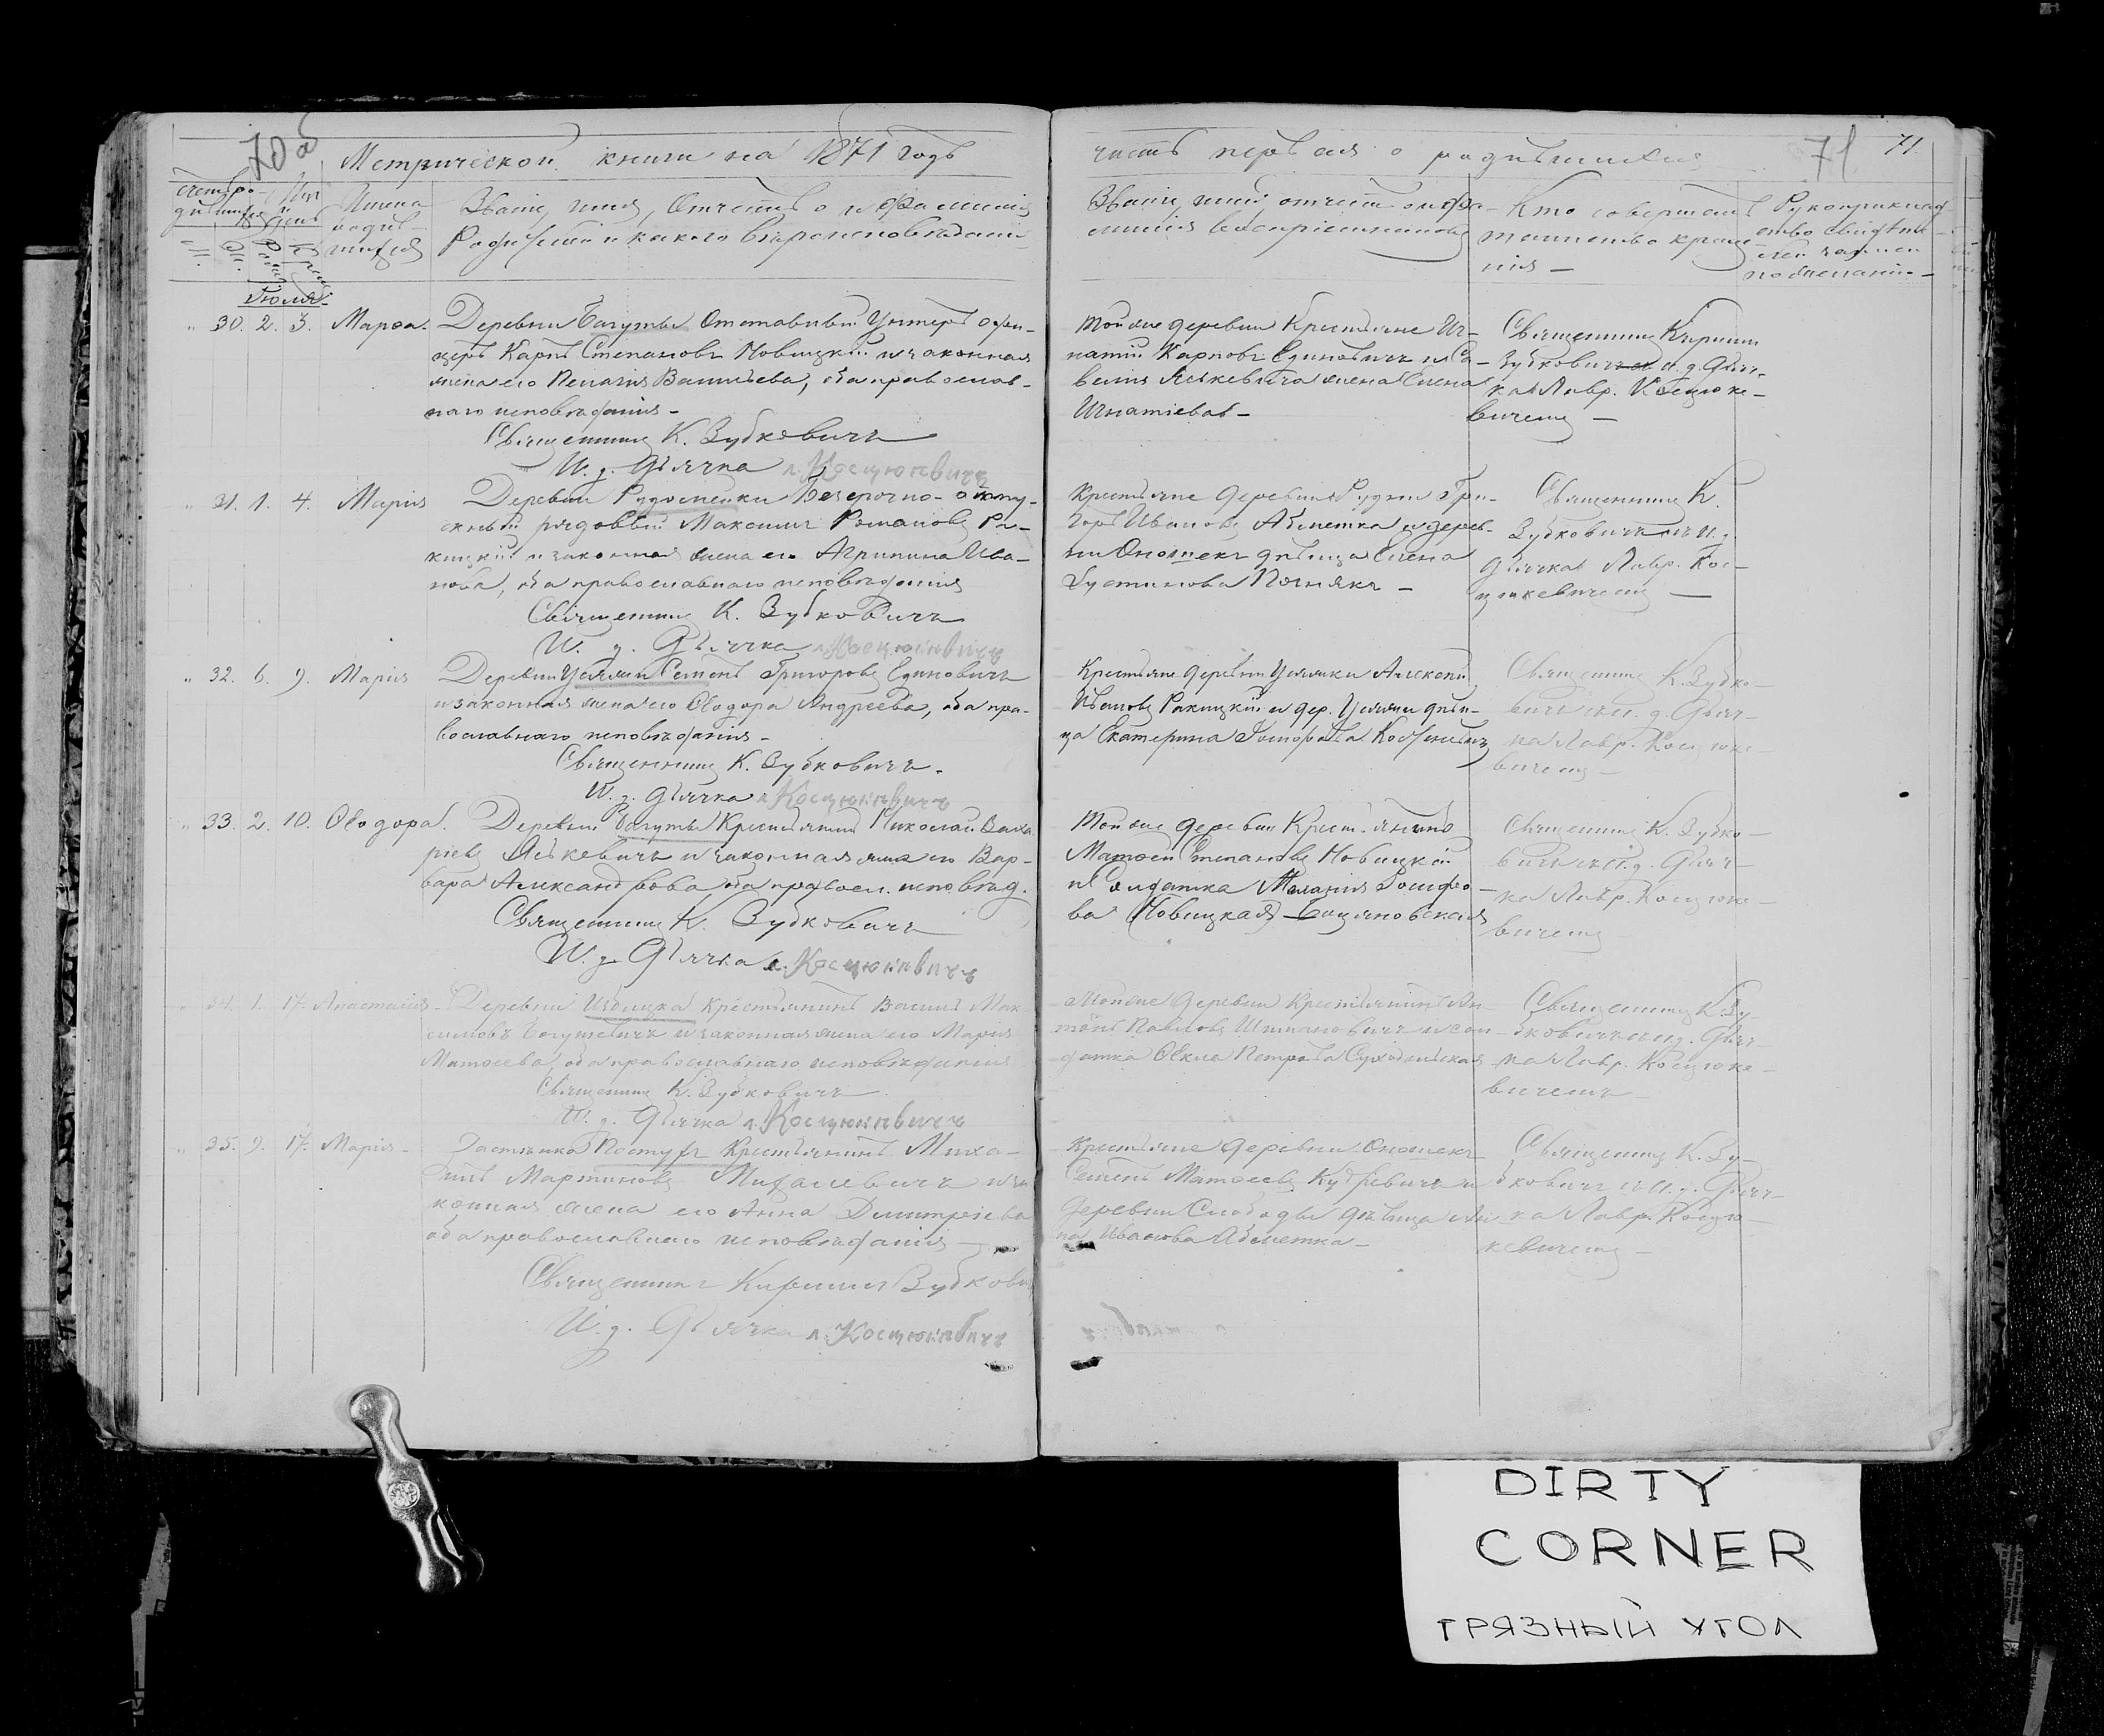 70 об
Метрической книги на 1871 годъ
Имена
родив-
шихся
Званіе, имя, Отчество и Фамилія
Родителей и какого вѣроисповѣданія
Іюль
30. 2. 3. Марѳа. Деревни Багуты Отставной Унтеръ офи-
церъ Карпъ Степановъ Новицкій и законная
жена его Пелагія Васильева, оба православ-
наго исповѣданія -
Священникъ К. Зубковичъ
И. д. Дьячка Л. Косцюкевичъ
31. 1. 4. Марія Деревни Рудомейки Безсрочно-отпу-
скный рядовый Максимъ Романовъ Ра-
кицкій и законная жена его Агрипина Ива-
нова, оба православнаго исповѣданія
Священникъ К. Зубковичъ
И. д. Дьячка Л. Косцюкевичъ
32. 6. 9. Марія Деревни Семенъ Григоровъ Единовичъ
и законная жена его Ѳеодора Андреева, оба пра-
вославнаго исповѣданія -
Священникъ К. Зубковичъ.
И. д. Дьячка Л. Косцюкевичъ
33. 2. 10. Ѳеодора. Деревни Багуты Крестьянинъ Николай Заха
ріевъ Яцкевичъ и законная жена его Вар-
вара Александрова, оба правосл. исповѣд.
Священникъ К. Зубковичъ
И. д. Дьячка Л. Косцюкевичъ
34. 1. 17. Анастасія - Деревни Избицка крестьянинъ Василь Мак
симовъ Богушевичъ и законная жена его Марія
Матѳеева, оба православнаго исповѣданія
Священникъ К. Зубковичъ
И. д. Дьячка Л. Косцюкевичъ
35. 9. 17. Марія - Застѣнка Крестьянинъ Миха-
илъ Мартиновъ Михалевичъ и за
конная жена его Анна Димитріева
оба православнаго исповѣданія
Священникъ Кириллъ Зубкови
И. д. Дьячка Л. Косцюкевичъ
часть первая о родившихся 71 71.
Званіе, имя, отчество и фа-
милія воспріемниковъ
Кто совершалъ
таинство креще
нія -
Рукоприклад-
ство свидѣте-
лей записи
по желанію -
Той же деревни Крестьяне Иг-
натій Карповъ Единовичъ и Са-
велія Яцкевича жена Елена
Игнатіева -
Священникъ Кириллъ
Зубковичъ съ и. д. Дьяч-
ка Лавр. Косцюке-
вичемъ -
Крестьяне деревни Рудни Гри-
горъ Ивановъ Абметка и дерев-
ни Оношекъ дѣвица Елена
Іустинова Познякъ -
Священникъ К.
Зубковичъ съ и.
дьячка Лавр. Кос-
цюкевичемъ -
Крестьяне деревни Алексѣй
Ивановъ Ракицкій и дер. дѣви-
ца Екатерина
Священникъ К. Зубко-
вичъ съ и. д. Дьяч-
ка Лавр. Косцюке-
вичемъ -
Той же деревни Крестьянинъ
Матѳей Степановъ Новицкій
и Солдатка Меланія Іосифо-
ва (Новицкая)
Священникъ К. Зубко-
вичъ съ и. д. Дьяч-
ка Лавр. Косцюке-
вичемъ
Той же деревни Крестьянинъ Ан-
тонъ Павловъ Шимановичъ и сол-
датка Ѳекла Петрова
Священникъ К. Зу-
бковичъ съ и. д. Дьяч-
ка Лавр. Косцюке-
вичемъ
Крестьяне деревни Оношекъ
Семенъ Матѳеевъ Кудревичъ и
деревни Слободы дѣвица Ан
на Иванова Абметка -
Священникъ К. Зу-
бковичъ съ и. д. Дьяч-
ка Лавр. Косцю-
кевичемъ -
DIRTY
CORNER
ГРЯЗНЫЙ УГОЛ